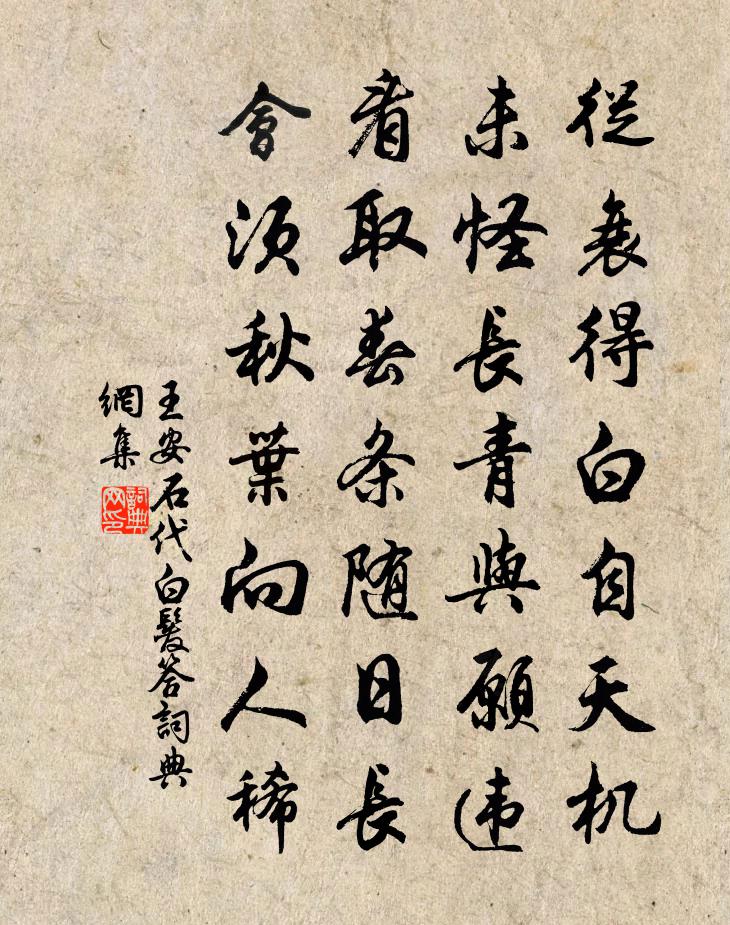 從衰得白自天机
未怪長青與願违
看取春条随日長
會須秋葉向人稀
王安石代白髮答詞典
網集
詞典
网印